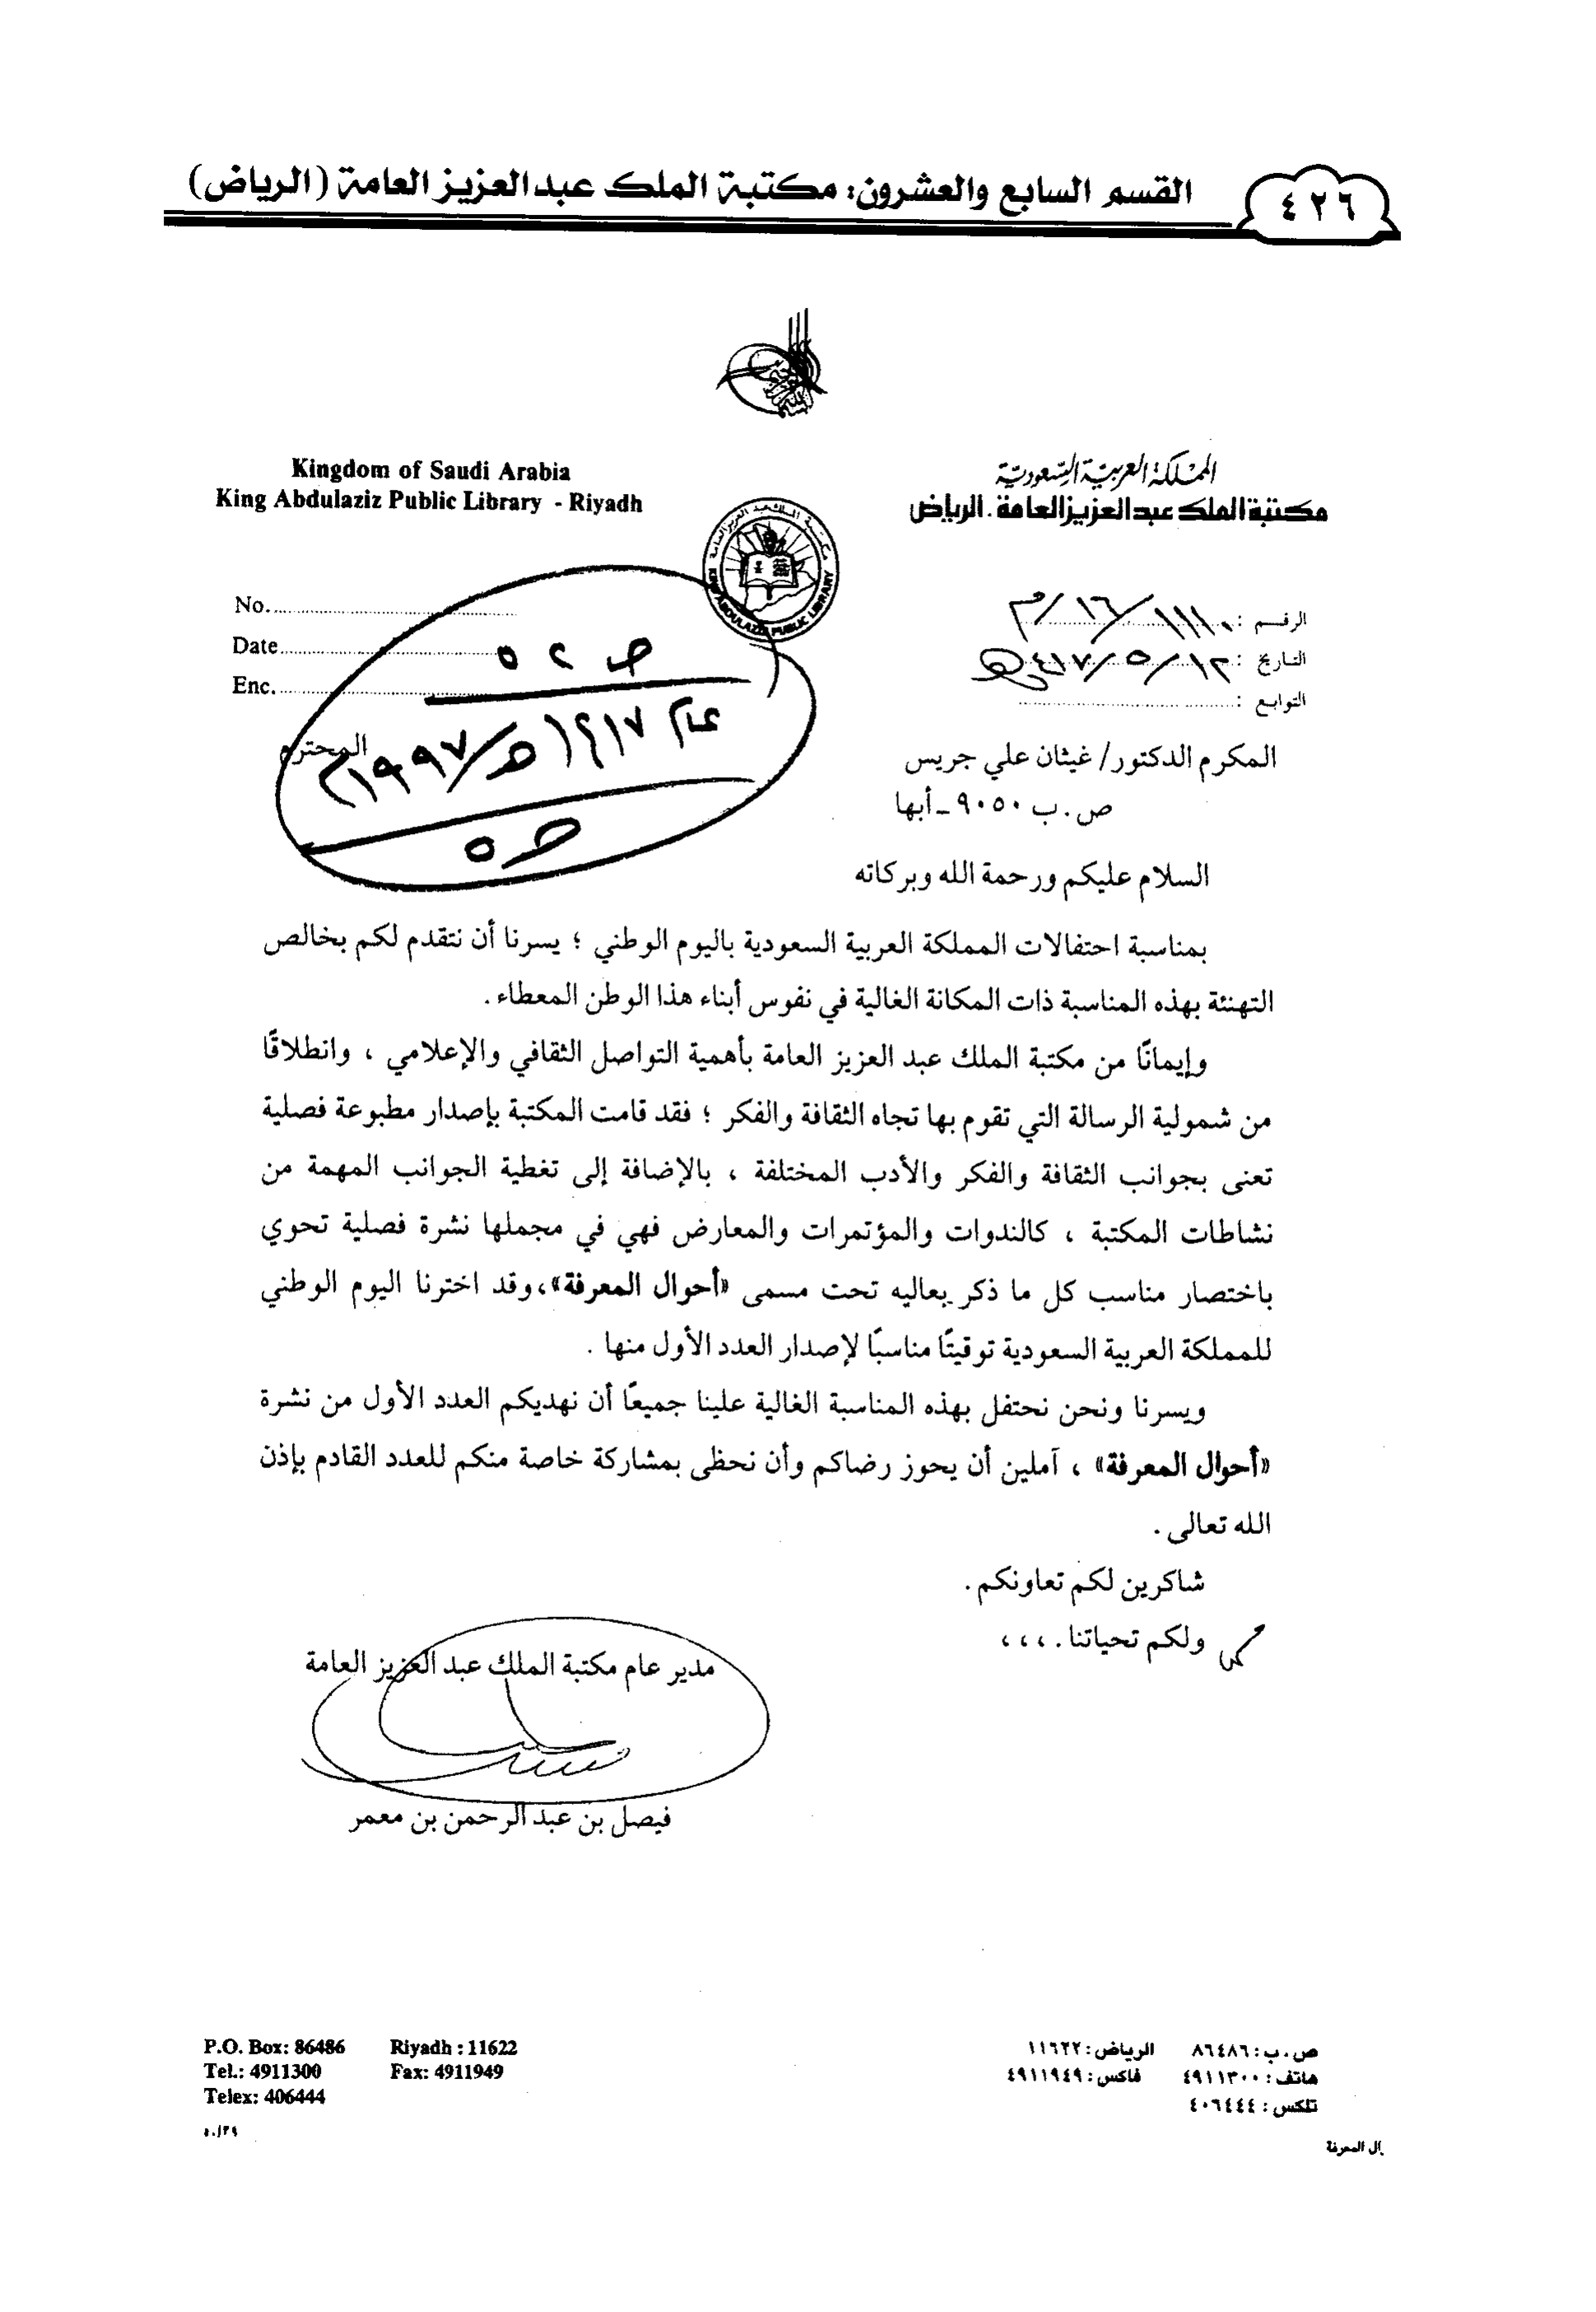 ٤٢٦
القسم السابع والعشرون: مكتبة الملك عبدالعزيز العامة (الرياض)
Kingdom of Saudi Arabia
King Abdulaziz Public Library - Riyadh
المملكة العربية السعودية
مكتبة الملك عبدالعزيز العامة . الرياض
مكتبة الملك عبد العزيز العامة
KING ABDULAZIZ PUBLIC LIBRARY
No.
Date
Enc.
الرقم :
التاريخ : ١٢/٥/٤١٧هـ
التوابع :
عام ١٤١٧هـ/١٩٩٧م
المكرم الدكتور/ غيثان علي جريس
المحترم
ص.ب ٩٠٥٠ ـ أبها
السلام عليكم ورحمة الله وبركاته
بمناسبة احتفالات المملكة العربية السعودية باليوم الوطني ؛ يسرنا أن نتقدم لكم بخالص
التهنئة بهذه المناسبة ذات المكانة الغالية في نفوس أبناء هذا الوطن المعطاء .
وإيمانًا من مكتبة الملك عبد العزيز العامة بأهمية التواصل الثقافي والإعلامي ، وانطلاقًا
من شمولية الرسالة التي تقوم بها تجاه الثقافة والفكر ؛ فقد قامت المكتبة بإصدار مطبوعة فصلية
تعنى بجوانب الثقافة والفكر والأدب المختلفة ، بالإضافة إلى تغطية الجوانب المهمة من
نشاطات المكتبة ، كالندوات والمؤتمرات والمعارض فهي في مجملها نشرة فصلية تحوي
باختصار مناسب كل ما ذكر بعاليه تحت مسمى «أحوال المعرفة»، وقد اخترنا اليوم الوطني
للمملكة العربية السعودية توقيتًا مناسبًا لإصدار العدد الأول منها .
ويسرنا ونحن نحتفل بهذه المناسبة الغالية علينا جميعًا أن نهديكم العدد الأول من نشرة
«أحوال المعرفة» ، آملين أن يحوز رضاكم وأن نحظى بمشاركة خاصة منكم للعدد القادم بإذن
الله تعالى .
شاكرين لكم تعاونكم .
ولكم تحياتنا . ، ، ،
مدير عام مكتبة الملك عبد العزيز العامة
فيصل بن عبد الرحمن بن معمر
P.O. Box: 86486 Riyadh : 11622
Tel.: 4911300 Fax: 4911949
Telex: 406444
ص.ب: ٨٦٤٨٦ الرياض: ١١٦٢٢
هاتف: ٤٩١١٣٠٠ فاكس: ٤٩١١٩٤٩
تلكس: ٤٠٦٤٤٤
إل المعرفة